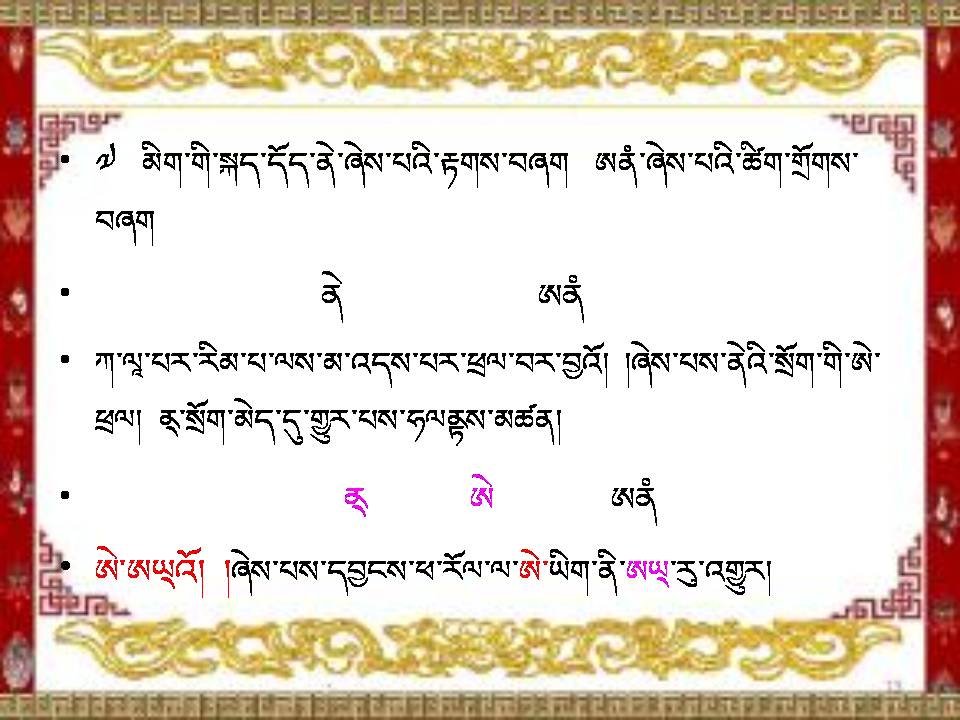 • ༧ མིག་གི་སྐད་དོད་ནེ་ཞེས་པའི་རྟགས་བཞག  ཨནཾ་ཞེས་པའི་ཚིག་གྲོགས་
བཞག
• ནེ ཨནཾ
• ཀ་ལཱ་པར་རིམ་པ་ལས་མ་འདས་པར་ཕྲལ་བར་བྱའོ། །ཞེས་པས་ནེའི་སྲོག་གི་ཨེ་
ཕྲལ། ན྄་སྲོག་མེད་དུ་གྱུར་པས་ཧལནྟས་མཚན།
• ན྄ ཨེ ཨནཾ
• ཨེ་ཨཡ྄འོ། །ཞེས་པས་དབྱངས་ཕ་རོལ་ལ་ཨེ་ཡིག་ནི་ཨཡ྄་རུ་འགྱུར།